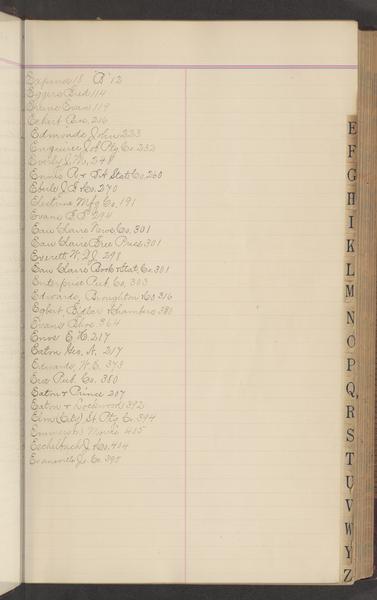 Expenses 18 "B" 12
Eggers Fred 114
Evans 119
Eckart Bros. 216
Edmonds John 223
Enquirer Job Ptg Co 232
Everly J. M. 248
Ennis R & Stat Co. 260
Eberle J. F. & Co. 270
Electrine Mfg Co. 191
Evans 294
Eau Claire News Co. 301
Eau Claire Free Press 301
Everett W. J. 298
Eau Claire Book & Stat. Co. 301
Enterprise Pub. Co. 303
Edwards, Broughton & Co 316
Egbert, Fidlar & Chambers 380
Evans 364
Enos E. H. 217
Eaton Geo. A. 217
Edwards, W. E. 373
Era Pub. Co. 380
Eaton & Prince 207
Eaton & Lockwood 392
Elm City St Ptg Co. 394
Emmerson 405
Eschelbach J. & Co. 404
Evansville Co. 395
E
F
G
H
I
K
L
M
N
O
P
Q
R
S
T
U
V
W
Y
Z